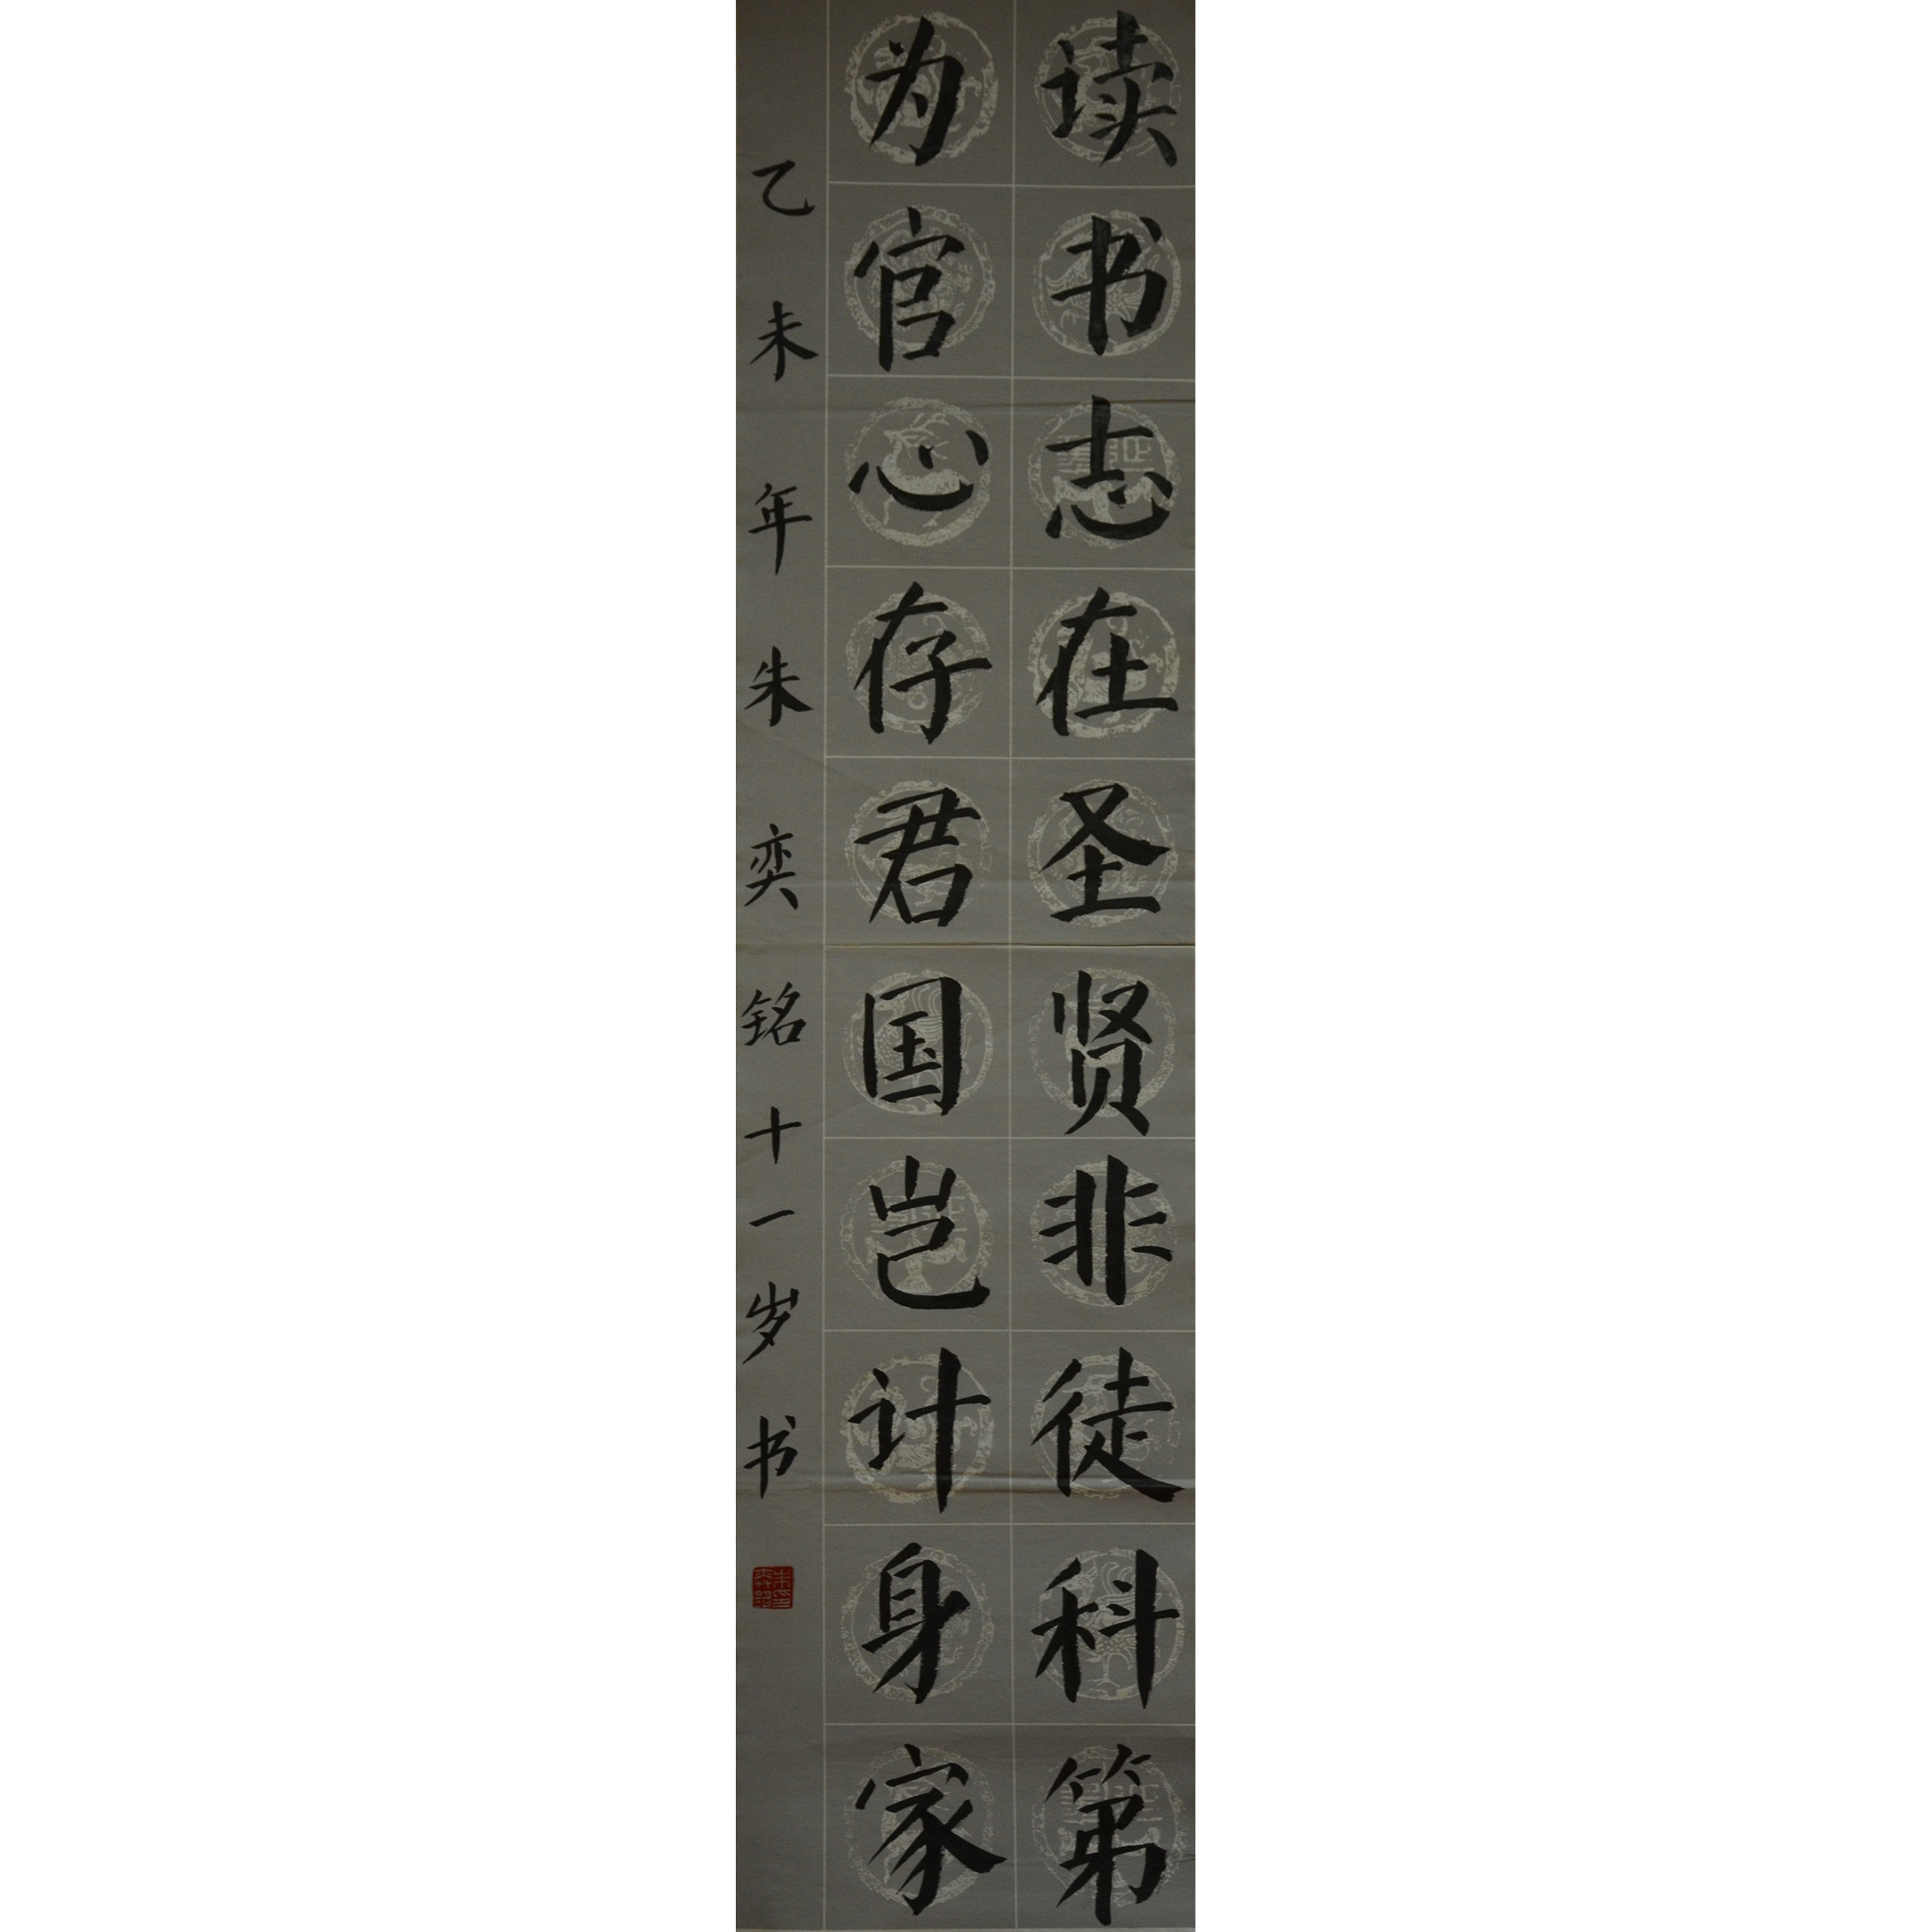 读书志在圣贤非徒科第
为官心存君国岂计身家
乙未年朱奕铭十一岁书